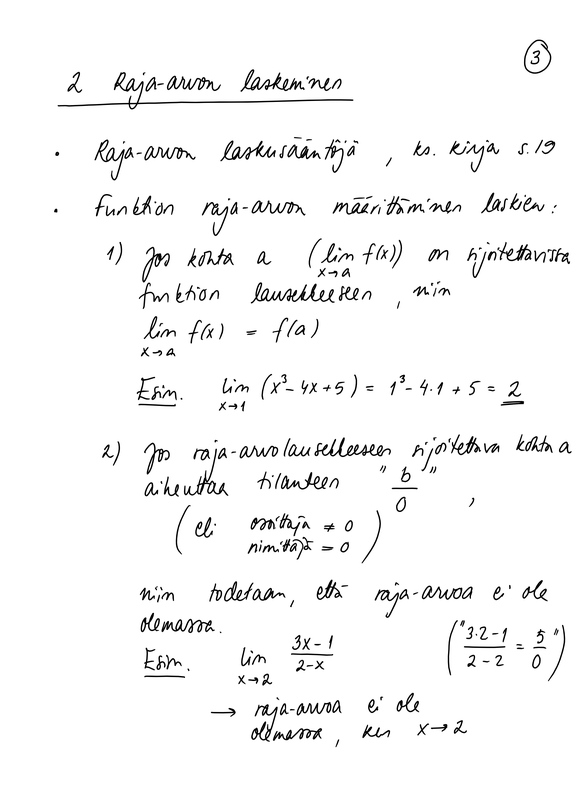 3
2 Raja-arvon laskeminen
• Raja-arvon laskusääntöjä, ks. kirja s.19
• Funktion raja-arvon määrittäminen laskien:
1) Jos kohta a (lim x→a f(x)) on sijoitettavissa
funktion lausekkeeseen, niin
lim x→a f(x) = f(a)
Esim. lim x→1 (x³ - 4x + 5) = 1³ - 4·1 + 5 = 2
2) Jos raja-arvolausekkeeseen sijoitettava kohta a
aiheuttaa tilanteen "b/0",
(eli osoittaja ≠ 0
nimittäjä = 0)
niin todetaan, että raja-arvoa ei ole
olemassa.
Esim. lim x→2 (3x-1)/(2-x) ("(3·2-1)/(2-2) = 5/0")
→ raja-arvoa ei ole
olemassa, kun x→2